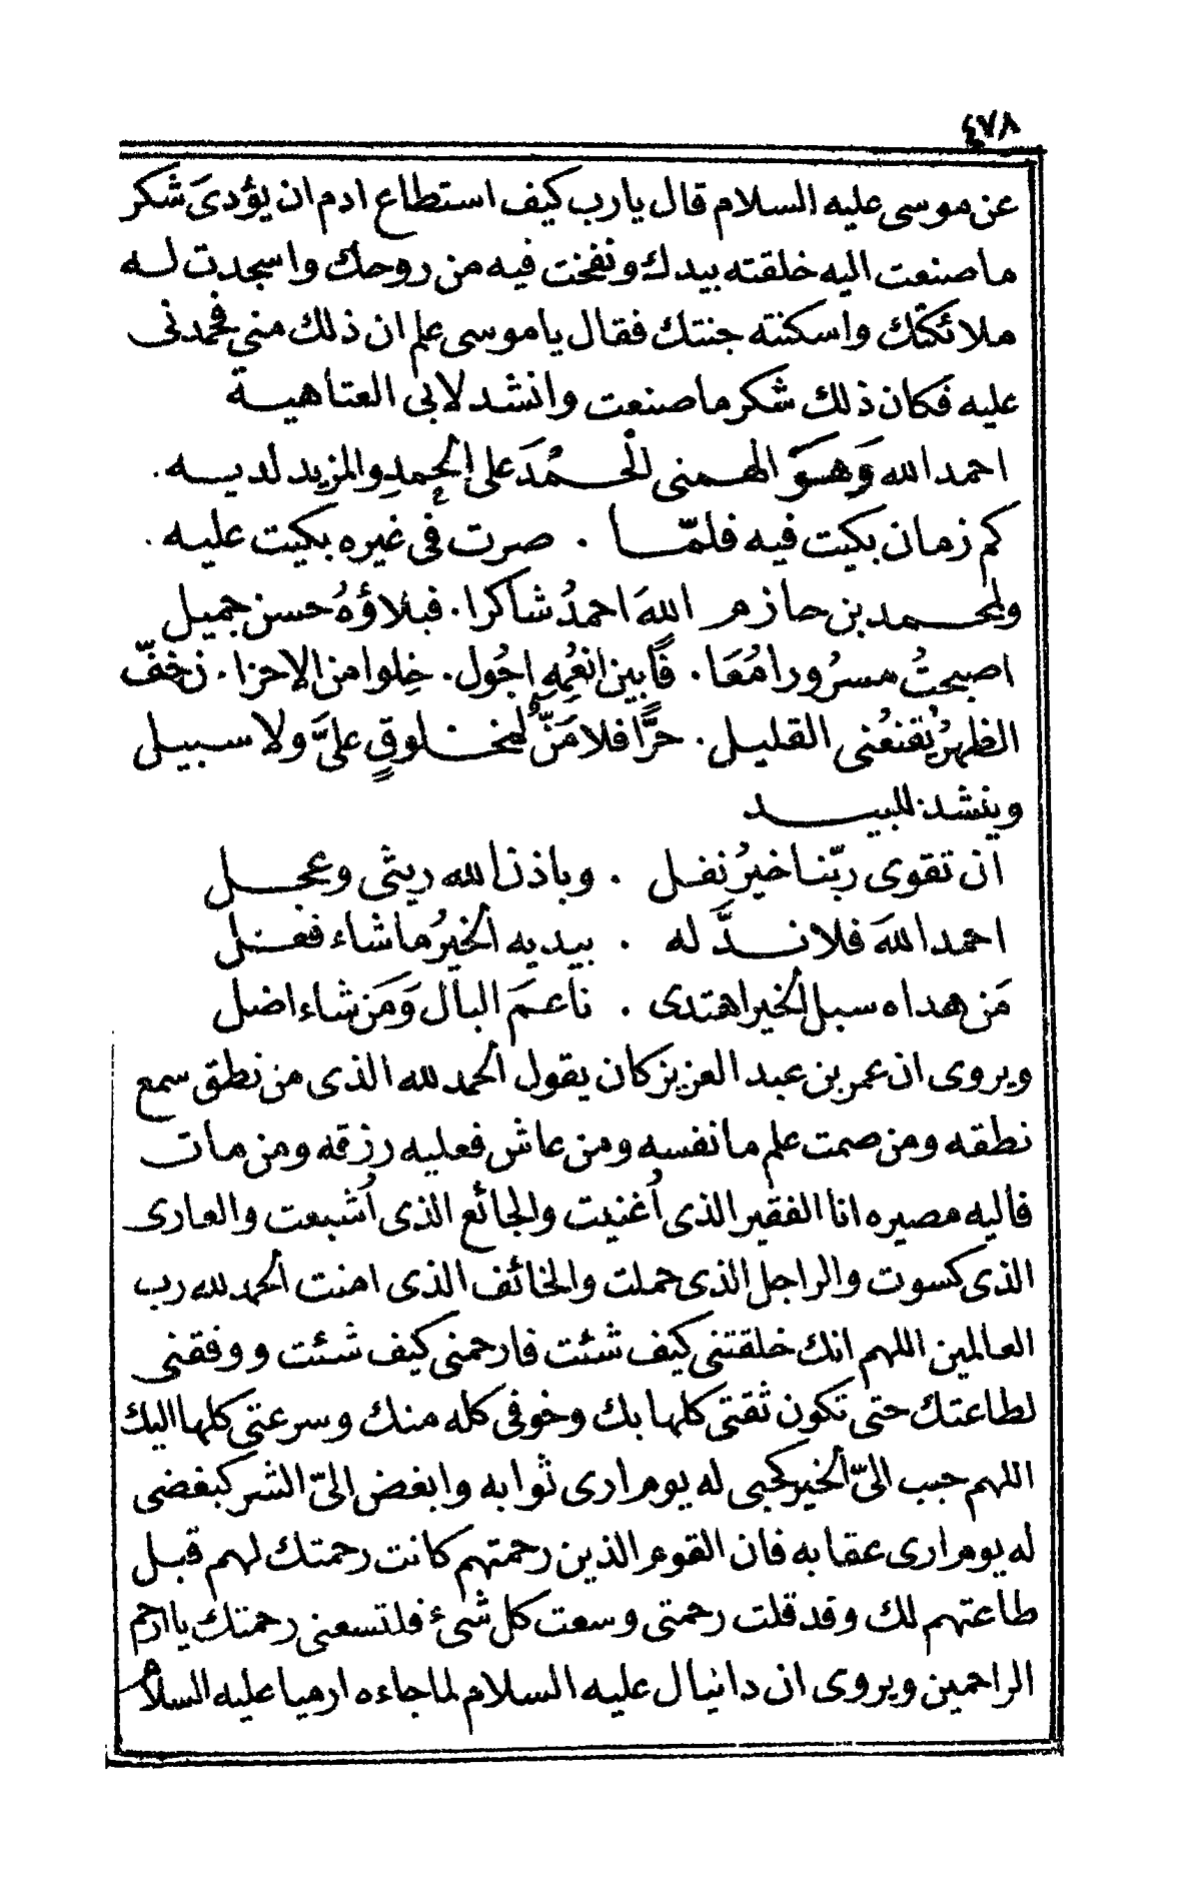 ٤٧٨
عن موسى عليه السلام قال يارب كيف استطاع ادم ان يؤدىَ شكر
ما صنعت اليه خلقته بيدك ونفخت فيه من روحك واسجدت له
ملائكتك واسكنته جنتك فقال يا موسى علم ان ذلك منى فحمدنى
عليه فكان ذلك شكر ما صنعت وانشد لابى العتاهية
احمد الله وَهوَ الهمنى الْحمْدَ على الحمدِ والمزيد لديه .
كم زمان بكيت فيه فلمّا . صرت فى غيره بكيت عليه .
ولمحمد بن حازم اللهَ احمدُ شاكرا . فبلاؤهُ حسن جميل
اصبحتُ مسرُورا مُعَافًا . بين انعُمِهِ اجُول . خِلوا من الاحزا . ن خفّ
الظهرُ يُقنعُنى القليل . حرًّا فلا مَنٌّ لمخلوقٍ علىَّ ولا سبيل
وينشد للبيد
ان تقوى ربّنا خيرُ نفل . وباذن الله ريثى وعجل
احمد اللهَ فلا ندَّ له . بيديه الخيرُ ما شاء فعل
مَن هداه سبل الخير اهتدى . ناعمَ البال وَمَن شاء اضل
ويروى ان عمر بن عبد العزيز كان يقول الحمد لله الذى من نطق سمع
نطقه ومن صمت علم ما نفسه ومن عاش فعليه رزقه ومن مات
فاليه مصيره انا الفقير الذى اُغنيت والجائع الذى اُشبعت والعارى
الذى كسوت والراجل الذى حملت والخائف الذى امنت الحمد لله رب
العالمين اللهم انك خلقتنى كيف شئت فارحمنى كيف شئت ووفقنى
لطاعتك حتى تكون ثقتى كلها بك وخوفى كله منك وسرعتى كلها اليك
اللهم حبب الىّ الخير كحبى له يوم ارى ثوابه وابغض الىّ الشر كبغضى
له يوم ارى عقابه فان القوم الذين رحمتهم كانت رحمتك لهم قبل
طاعتهم لك وقد قلت رحمتى وسعت كل شىء فلتسعنى رحمتك يا ارحم
الراحمين ويروى ان دانيال عليه السلام لما جاءه ارميا عليه السلام